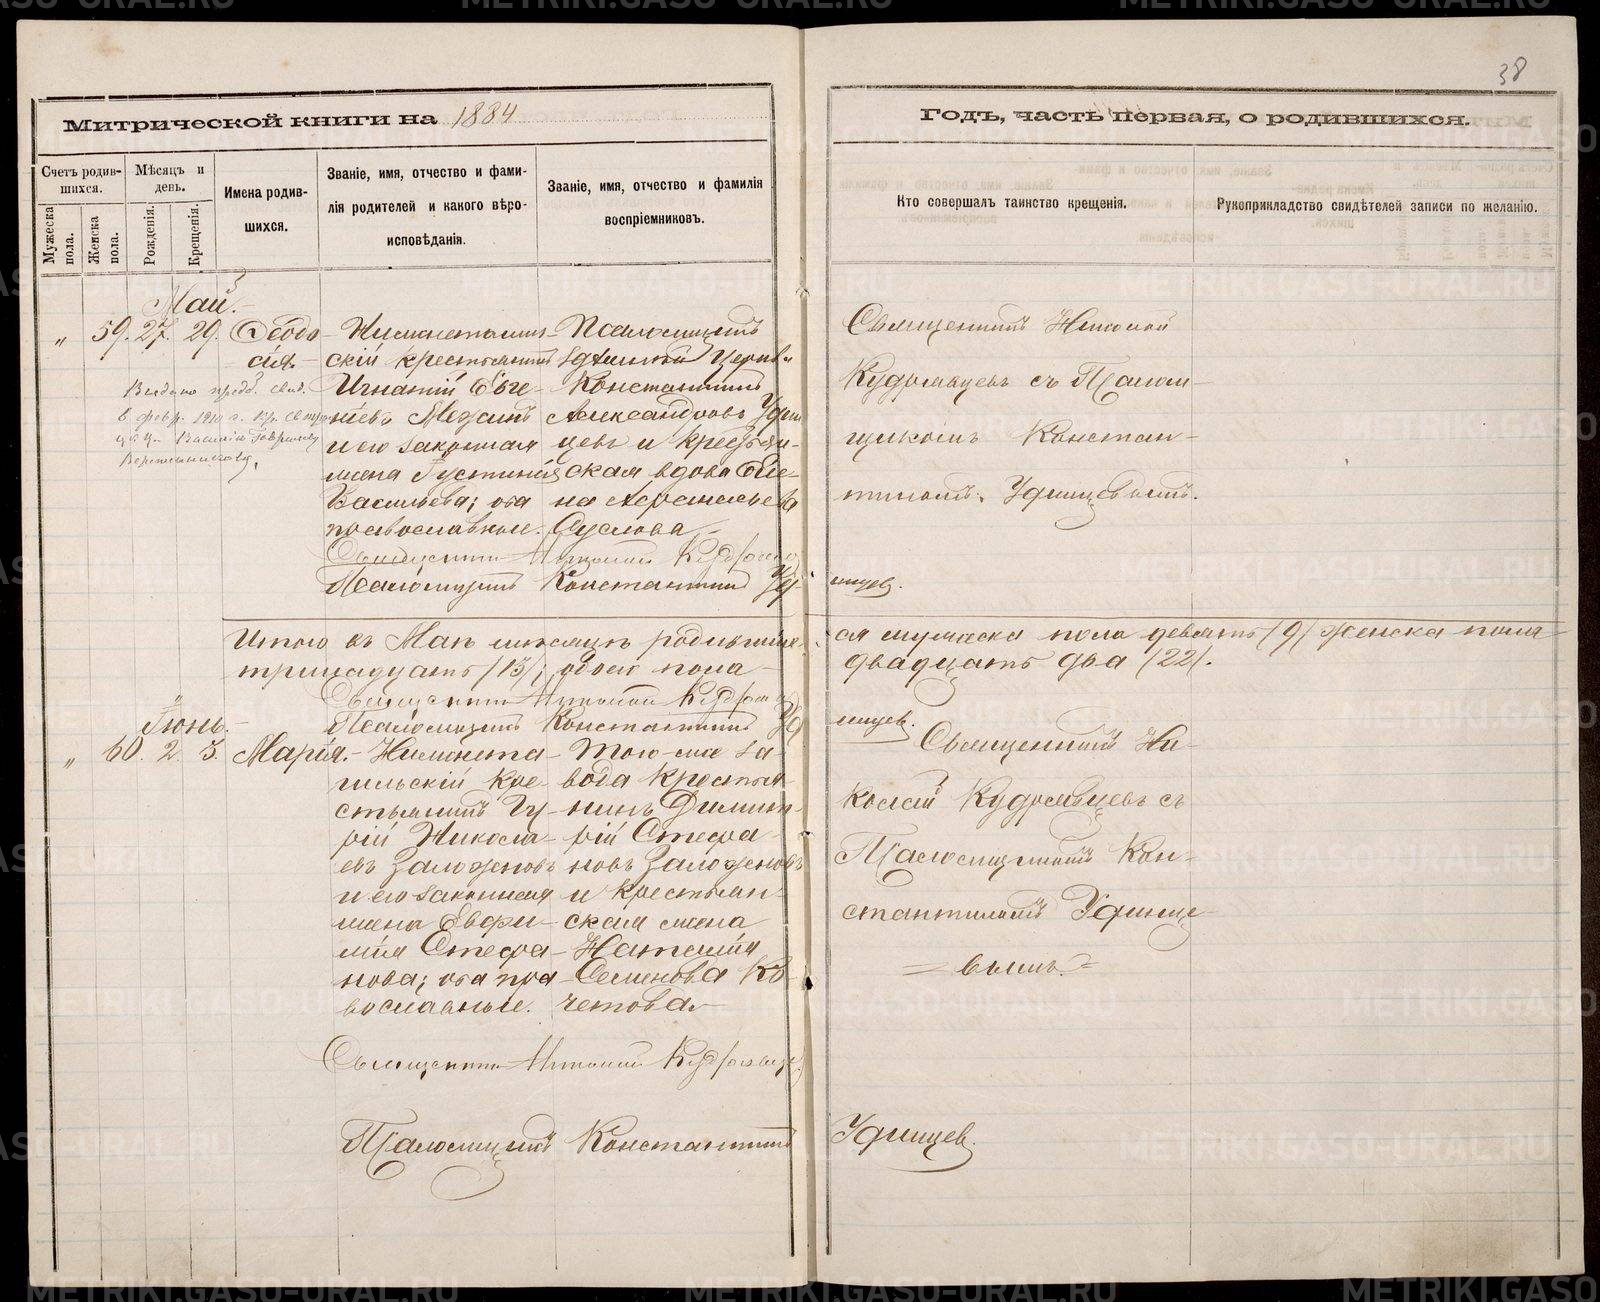 38
Митрической книги на 1884
Годъ, часть первая, о родившихся.
Счетъ родив-
шихся.
Мужеска
пола.
Женска
пола.
Мѣсяцъ и
день.
Рожденія.
Крещенія.
Имена родив-
шихся.
Званіе, имя, отчество и фами-
лія родителей и какого вѣро-
исповѣданія.
Званіе, имя, отчество и фамилія
воспріемниковъ.
Кто совершалъ таинство крещенія.
Рукоприкладство свидѣтелей записи по желанію.
Май.
„ 59. 27. 29. Ѳеодо-
сія.
Нижнетагиль-
скій крестьянинъ
Игнатій Евге-
ніевъ
и его законная
жена Густинія
Васильева; оба
православные.
Псаломщикъ
церкви
Константинъ
Александровъ Удин
цевъ и крестьян-
ская вдова Еле-
на Аѳанасьева
Суслова
Священникъ Николай
Кудрявцевъ съ Псалом-
щикомъ Констан-
тиномъ Удинцевымъ.
Выдано
въ февр. 1910 г.
Священникъ Николай Кудрявцевъ
Псаломщикъ Константинъ Уд-
инцев.
Итого въ Маѣ мѣсяцѣ родивших-
ся мужеска пола девять /9/ женска пола
тринадцать /13/, обоего пола
двадцать два /22/.
Священникъ Николай Кудрявцевъ
Псаломщикъ Константинъ Уд
инцев.
Іюнь.
„ 60. 2. 3. Марія.
Нижнета-
гильскій кре-
стьянинъ Гу-
рій Никола-
евъ Заложновъ
и его законная
жена Евфи-
мія Стефа-
нова; оба пра-
вославные.
Того-же за-
вода крестья-
нинъ Димит-
рій Стефа-
новъ Заложновъ
и крестьян-
ская жена
Наталія
Семенова Ко-
четова
Священникъ Ни-
колай Кудрявцевъ съ
Псаломщикомъ Кон-
стантиномъ Удинце-
= вымъ. =
Священникъ Николай Кудрявцевъ
Псаломщикъ Константинъ Удинцев.
METRIKI.GASO-URAL.RU